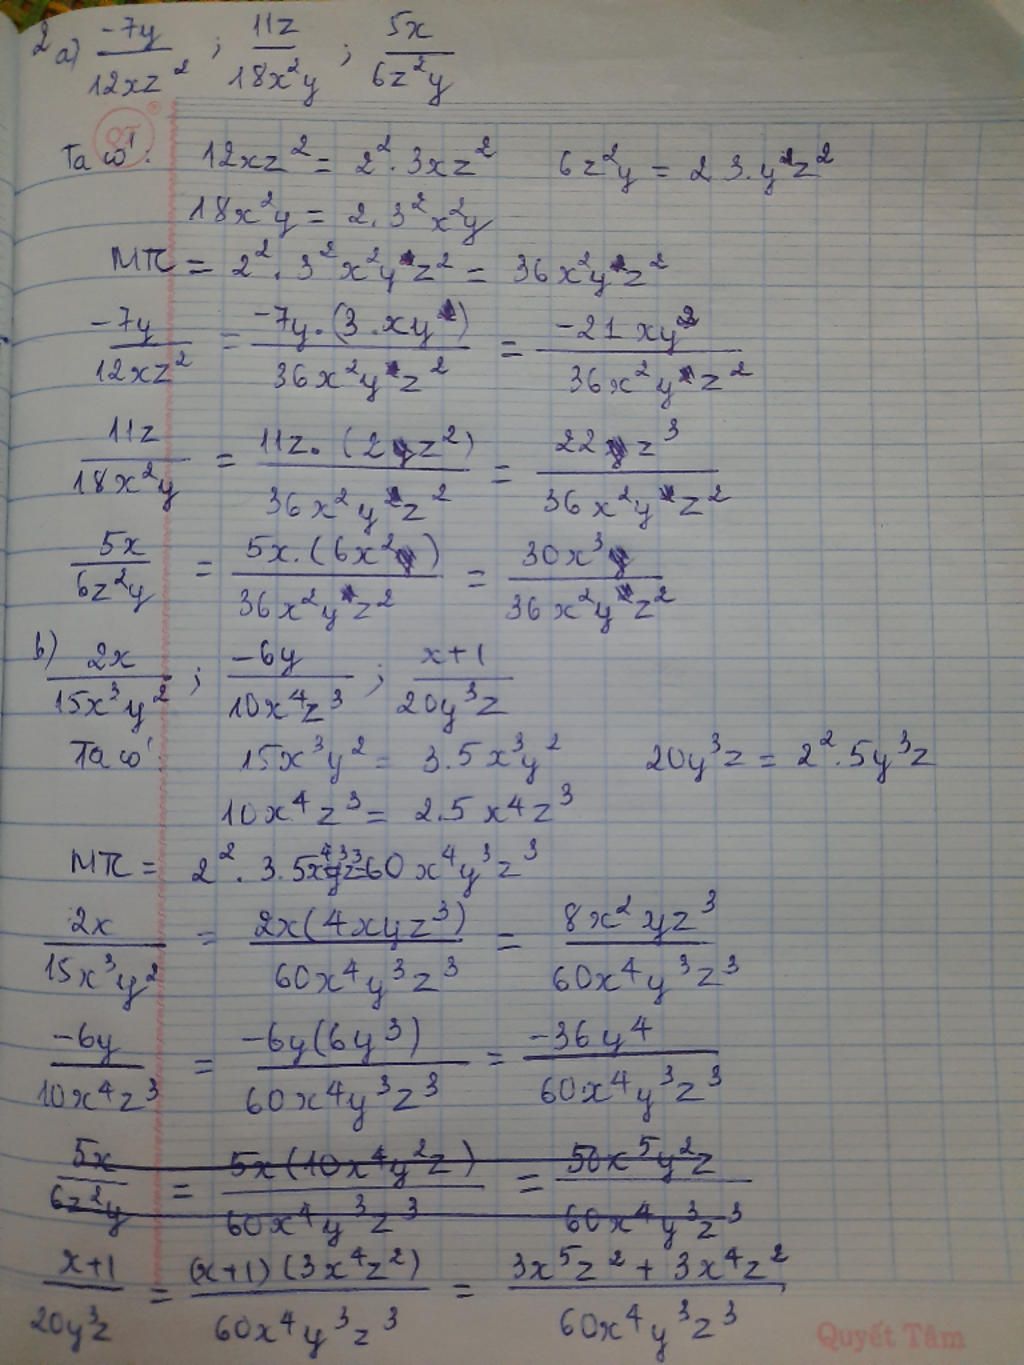 2 a) -7y/12xz² ; 11z/18x²y ; 5x/6z²y
Ta có: 12xz² = 2².3xz² 6z²y = 2 3.yz²
18x²y = 2.3²x²y
MTC = 2².3²x²yz² = 36x²yz²
-7y/12xz² = -7y.(3.xy)/36x²yz² = -21xy²/36x²yz²
11z/18x²y = 11z.(2z²)/36x²yz² = 22z³/36x²yz²
5x/6z²y = 5x.(6x²)/36x²yz² = 30x³/36x²yz²
b) 2x/15x³y² ; -6y/10x⁴z³ ; x+1/20y³z
Ta có 15x³y² = 3.5x³y² 20y³z = 2².5y³z
10x⁴z³ = 2.5x⁴z³
MTC = 2².3.5x⁴y³z³=60x⁴y³z³
2x/15x³y² = 2x(4xyz³)/60x⁴y³z³ = 8x²yz³/60x⁴y³z³
-6y/10x⁴z³ = -6y(6y³)/60x⁴y³z³ = -36y⁴/60x⁴y³z³
5x/6z²y = 5x(10x⁴y²z)/60x⁴y³z³ = 50x⁵y²z/60x⁴y³z³
x+1/20y³z = (x+1)(3x⁴z²)/60x⁴y³z³ = 3x⁵z² + 3x⁴z²/60x⁴y³z³
Quyết Tâm